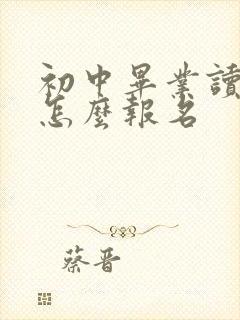 初中畢業讀
怎麼報名
蔡晋